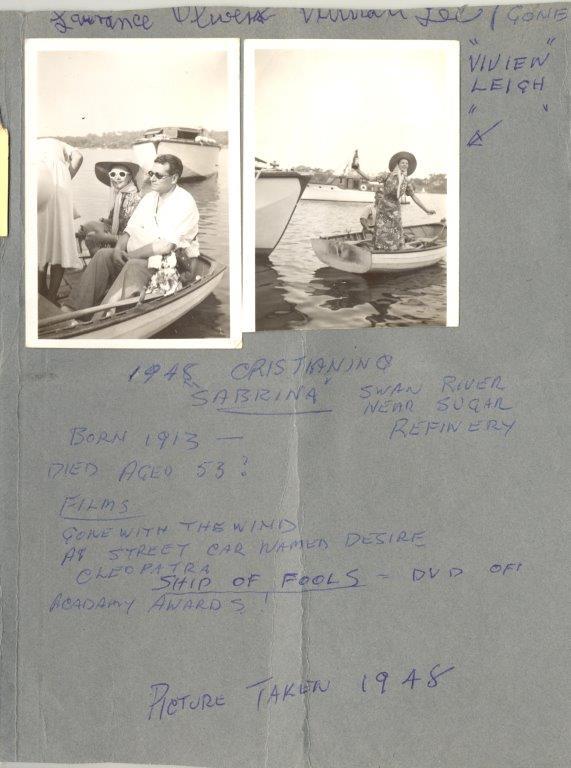 Lawrance Olivera Vivian Lee / GONE
" "
VIVIEW
LEIGH
" "
1948 CRISTIANING
"SABRINA" SWAN RIVER
NEAR SUGAR
REFINERY
BORN 1913 —
DIED AGED 53?
FILMS
GONE WITH THE WIND
A STREET CAR NAMED DESIRE
CLEOPATRA
SHIP OF FOOLS = DVD OF
ACADAMY AWARDS!
PICTURE TAKEN 1948